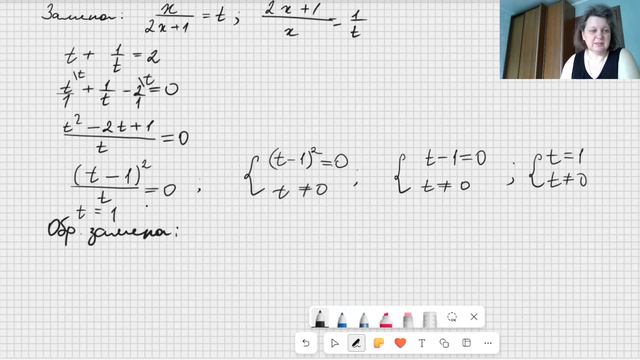 Замена: x/(2x+1) = t ; (2x+1)/x = 1/t
t + 1/t = 2
t/1 \t + 1/t - 2/1 \t = 0
(t² - 2t + 1)/t = 0
(t - 1)²/t = 0 ; { (t-1)² = 0 t ≠ 0 ; { t-1=0 t ≠ 0 ; { t=1 t≠0
t = 1
Обр. замена: